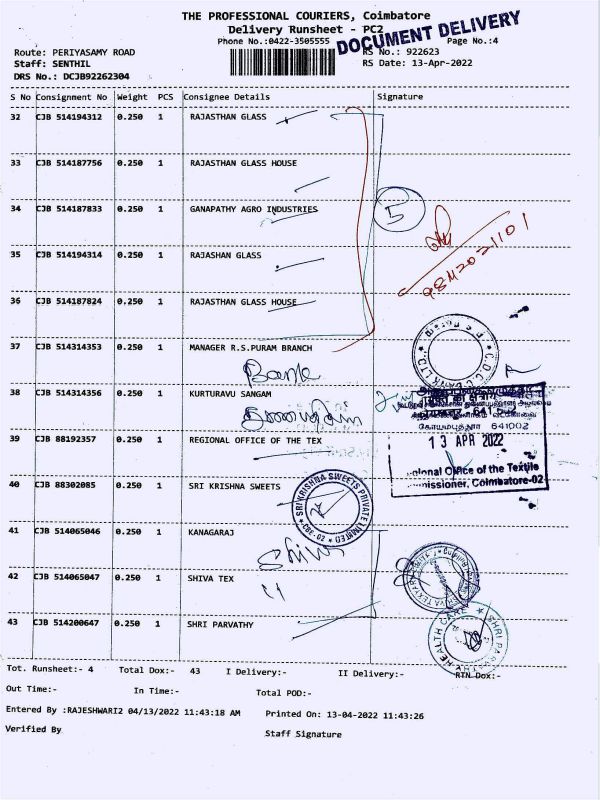 THE PROFESSIONAL COURIERS, Coimbatore
Delivery Runsheet - PC2
Phone No.:0422-3505555
DOCUMENT DELIVERY
Page No.:4
Route: PERIYASAMY ROAD
RS No.: 922623
Staff: SENTHIL
RS Date: 13-Apr-2022
DRS No.: DCJB92262304
S No Consignment No Weight PCS Consignee Details Signature
32 CJB 514194312 0.250 1 RAJASTHAN GLASS
33 CJB 514187756 0.250 1 RAJASTHAN GLASS HOUSE
34 CJB 514187833 0.250 1 GANAPATHY AGRO INDUSTRIES
5
35 CJB 514194314 0.250 1 RAJASHAN GLASS
36 CJB 514187824 0.250 1 RAJASTHAN GLASS HOUSE
37 CJB 514314353 0.250 1 MANAGER R.S.PURAM BRANCH
Bank
C.D.C.C. BANK LTD.,
38 CJB 514314356 0.250 1 KURTURAVU SANGAM
கோயமுத்தூர் 641002
39 CJB 88192357 0.250 1 REGIONAL OFFICE OF THE TEX
13 APR 2022
Office of the Textile
Coimbatore-02
40 CJB 88302085 0.250 1 SRI KRISHNA SWEETS
SRI KRISHNA SWEETS PRIVATE LIMITED
CBE-02
41 CJB 514065046 0.250 1 KANAGARAJ
42 CJB 514065047 0.250 1 SHIVA TEX
43 CJB 514200647 0.250 1 SHRI PARVATHY
SHRI PARVATHY HEALTH CARE
Tot. Runsheet:- 4 Total Dox:- 43 I Delivery:- II Delivery:- RTN Dox:-
Out Time:- In Time:- Total POD:-
Entered By :RAJESHWARI2 04/13/2022 11:43:18 AM Printed On: 13-04-2022 11:43:26
Verified By Staff Signature